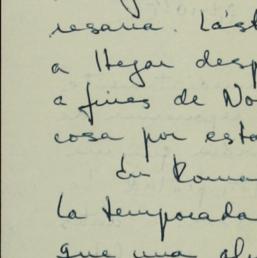 resaria. Lást
a llegar desp
a fines de No
cosa por esta
En Roma
la temporada
que una